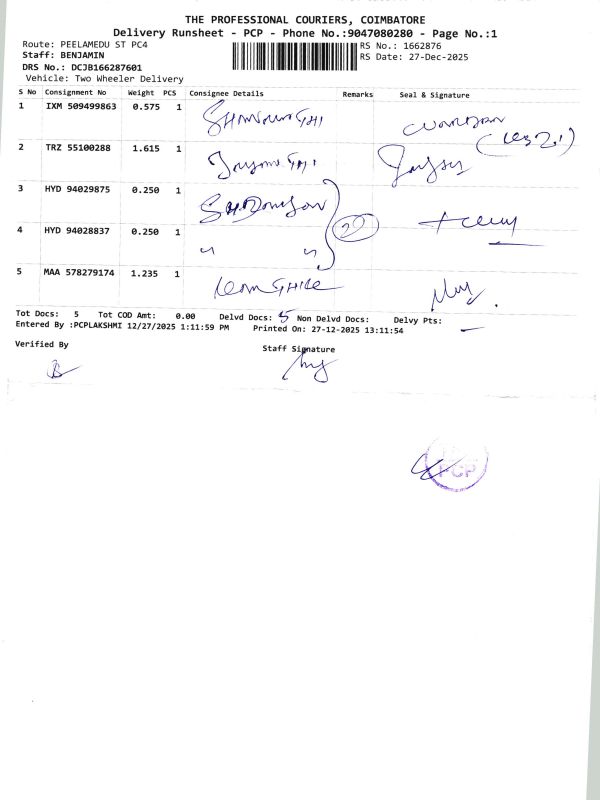 THE PROFESSIONAL COURIERS, COIMBATORE
Delivery Runsheet - PCP - Phone No.:9047080280 - Page No.:1
Route: PEELAMEDU ST PC4
RS No.: 1662876
Staff: BENJAMIN
RS Date: 27-Dec-2025
DRS No.: DCJB166287601
Vehicle: Two Wheeler Delivery
S No Consignment No Weight PCS Consignee Details Remarks Seal & Signature
1 IXM 509499863 0.575 1
2 TRZ 55100288 1.615 1
3 HYD 94029875 0.250 1
4 HYD 94028837 0.250 1
5 MAA 578279174 1.235 1
Tot Docs: 5 Tot COD Amt: 0.00 Delvd Docs: 5 Non Delvd Docs: Delvy Pts:
Entered By :PCPLAKSHMI 12/27/2025 1:11:59 PM Printed On: 27-12-2025 13:11:54
Verified By
Staff Signature
PCP